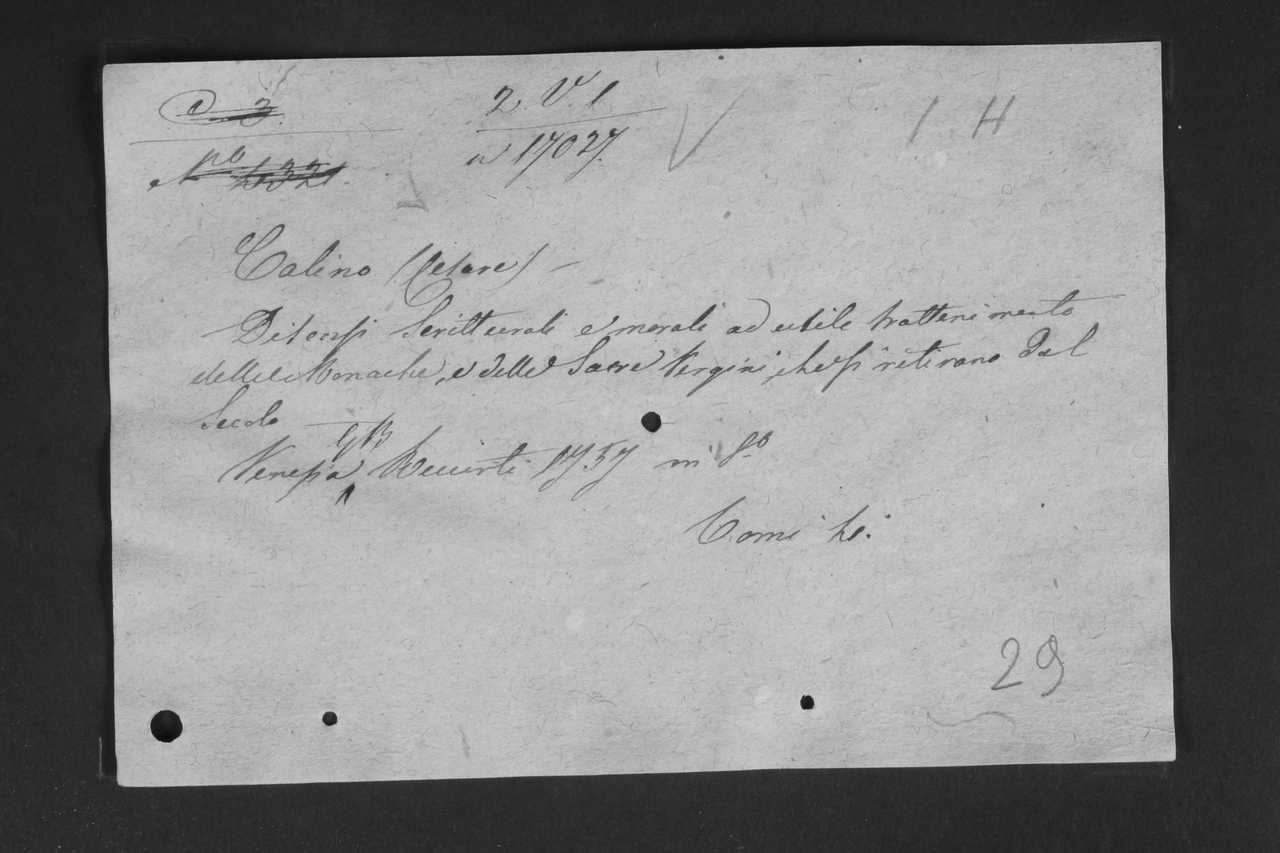 2. V. 1
a 17027.
1 H
Calino (Cesare) —
Discorsi Scritturali e morali ad utile trattenimento
delle Monache, e delle Sacre Vergini, che si ritirano dal
Secolo —
GB
Venezia Recurti 1757 in 8.o
Tomi
29